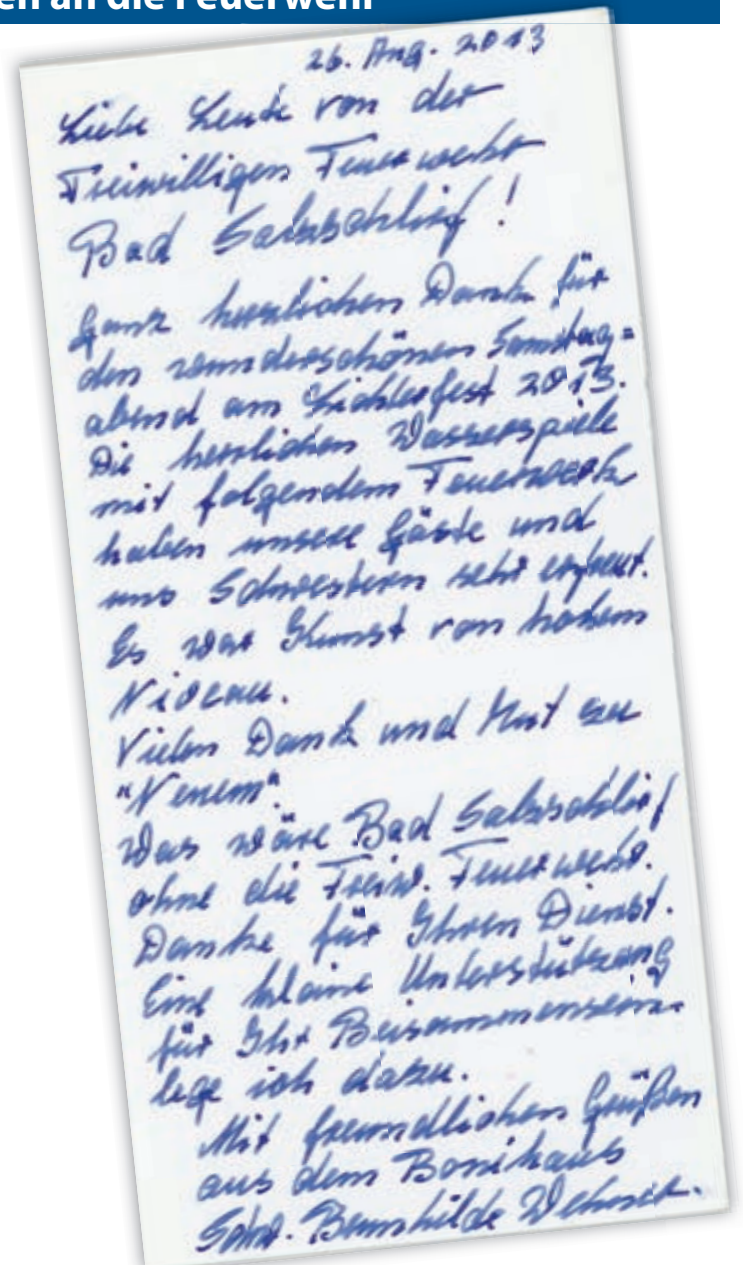 en an die Feuerwehr
26. Aug. 2013
Liebe Leute von der
Freiwilligen Feuerwehr
Bad Salzschlirf!
Ganz herzlichen Dank für
den wunderschönen Samstag=
abend am Lichterfest 2013.
Die herrlichen Wasserspiele
mit folgendem Feuerwerk
haben unsere Gäste und
uns Schwestern sehr erfreut.
Es war Kunst von hohem
Niveau.
Vielen Dank und Mut zu
"Neuem".
Was wäre Bad Salzschlirf
ohne die Freiw. Feuerwehr.
Danke für Ihren Dienst.
Eine kleine Unterstützung
für Ihr Beisammensein
lege ich dazu.
Mit freundlichen Grüßen
aus dem Bonihaus
Schw.